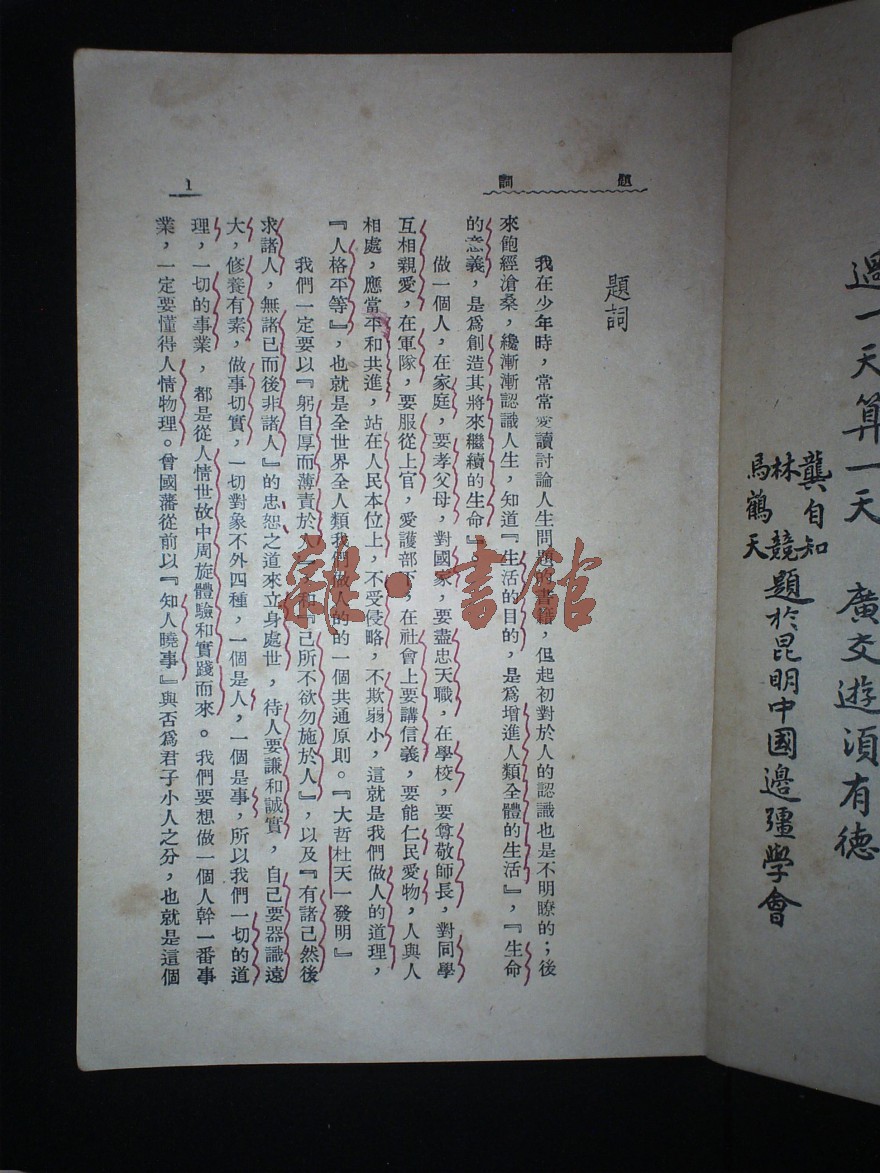 過一天算一天　廣交遊須有德
龔自知
林競
馬鶴天
題於昆明中國邊疆學會
題詞
1
題詞
我在少年時，常常愛讀討論人生問題的書籍，但起初對於人的認識也是不明瞭的；後
來飽經滄桑，纔漸漸認識人生，知道『生活的目的，是爲增進人類全體的生活』，『生命
的意義，是爲創造其將來繼續的生命』
做一個人，在家庭，要孝父母，對國家，要盡忠天職，在學校，要尊敬師長，對同學
互相親愛，在軍隊，要服從上官，愛護部下，在社會上要講信義，要能仁民愛物，人與人
相處，應當平和共進，站在人民本位上，不受侵略，不欺弱小，這就是我們做人的道理，
『人格平等』，也就是全世界全人類我們做人的的一個共通原則。『大哲杜天一發明』
我們一定要以『躬自厚而薄責於人』，和『己所不欲勿施於人』，以及『有諸己然後
求諸人，無諸己而後非諸人』的忠恕之道來立身處世，待人要謙和誠實，自己要器識遠
大，修養有素，做事切實，一切對象不外四種，一個是人，一個是事，所以我們一切的道
理，一切的事業，都是從人情世故中周旋體驗和實踐而來。我們要想做一個人幹一番事
業，一定要懂得人情物理。曾國藩從前以『知人曉事』與否爲君子小人之分，也就是這個
雜·書館